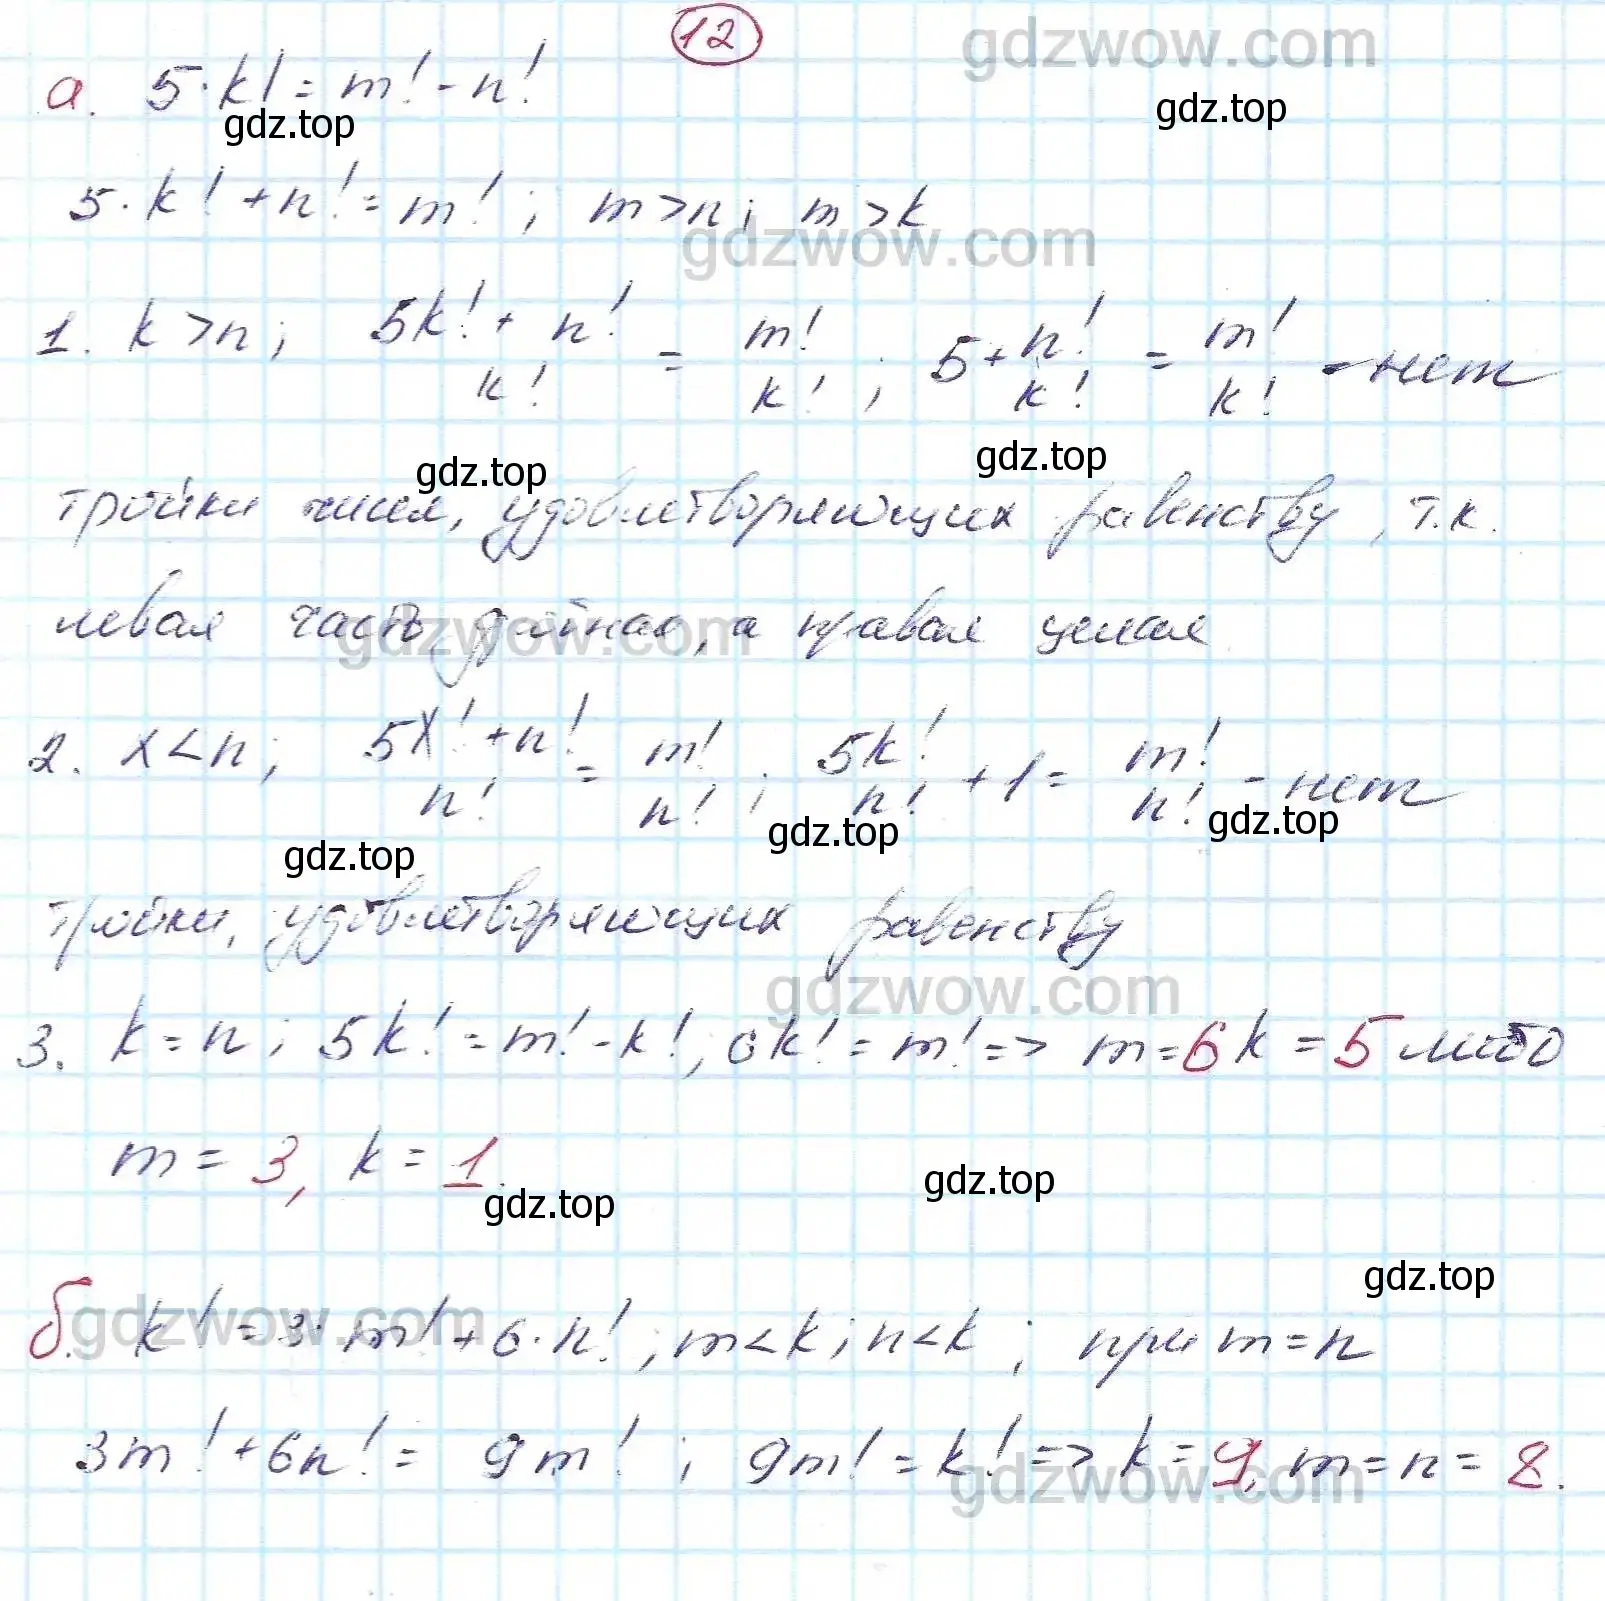 12
gdzwow.com
а. 5·k! = m! - n!
gdz.top gdz.top
5·k! + n! = m! ; m>n; m>k
gdzwow.com
1. k>n; (5k! + n!)/k! = m!/k! ; 5 + n!/k! = m!/k! - нет
gdz.top gdz.top
тройки чисел, удовлетворяющих равенству, т.к.
левая часть дробная, а правая целая
gdzwow.com
2. x<n; (5x! + n!)/n! = m!/n! ; 5k!/n! + 1 = m!/n! - нет
gdz.top gdz.top gdz.top
тройки, удовлетворяющих равенству
gdzwow.com
3. k=n; 5k! = m! - k!, 6k! = m! => m=6 k=5 либо
m = 3, k = 1.
gdz.top gdz.top
gdz.top
б. k! = 3·m! + 6·n!, m<k; n<k ; при m=n
gdzwow.com
3m! + 6n! = 9m! ; 9m! = k! => k=9, m=n=8.
gdzwow.com